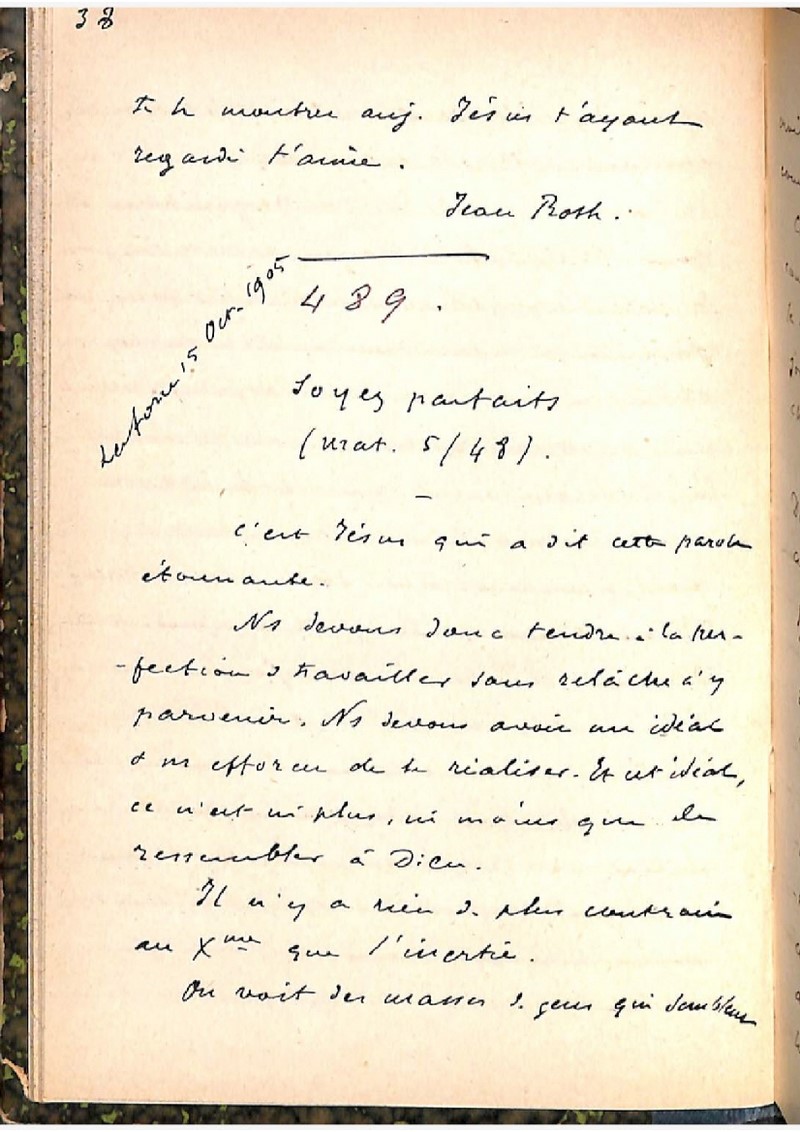 38
te le montrer auj. Jésus t'ayant
regardé t'aime.
Jean Roth.
15 Oct. 1905
489.
Soyez parfaits
(Mat. 5/48).
C'est Jésus qui a dit cette parole
étonnante.
Ns devons donc tendre à la per-
-fection & travailler sans relâche à y
parvenir. Ns devons avoir un idéal
& ns efforcer de le réaliser. Et cet idéal,
ce n'est ni plus, ni moins que de
ressembler à Dieu.
Il n'y a rien d. plus contraire
au Xme que l'inertie.
On voit des masses d. gens qui semblent